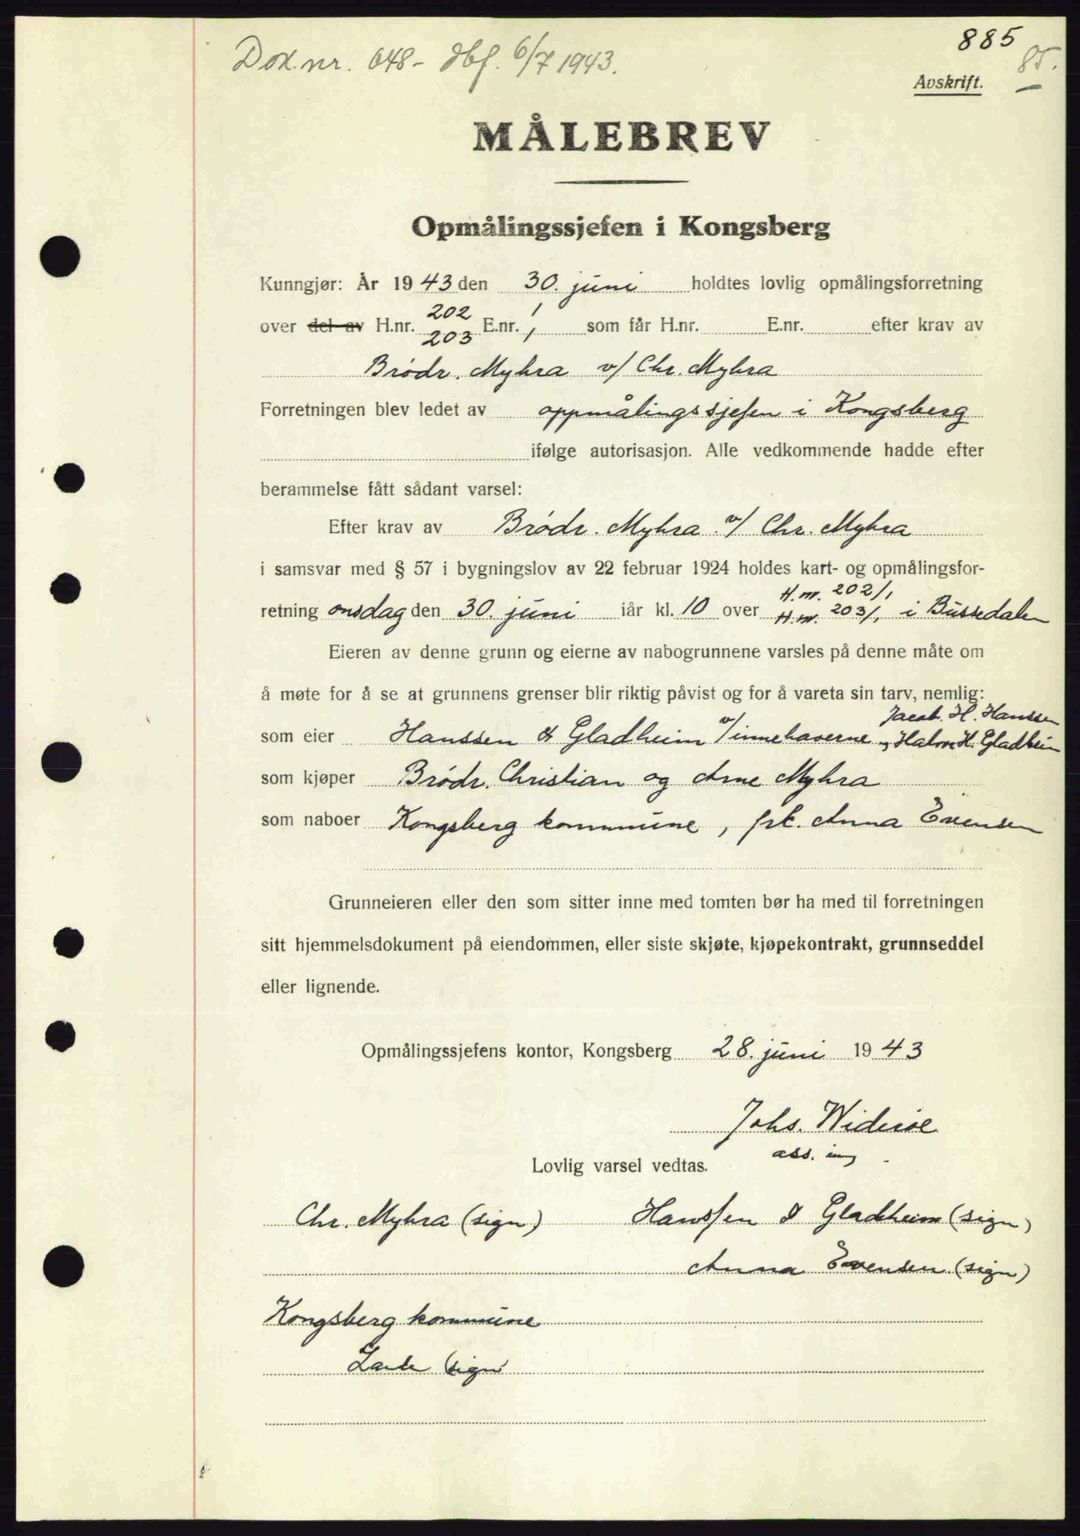 885
Dok.nr. 648- dbf. 6/7 1943.
85.
Avskrift.
MÅLEBREV
Opmålingssjefen i Kongsberg
Kunngjør: År 1943 den 30. juni holdtes lovlig opmålingsforretning
over del av H.nr. 202 203 E.nr. 1 1 som får H.nr. E.nr. efter krav av
Brødr. Myhra v/ Chr. Myhra
Forretningen blev ledet av oppmålingssjefen i Kongsberg
ifølge autorisasjon. Alle vedkommende hadde efter
berammelse fått sådant varsel:
Efter krav av Brødr. Myhra v/ Chr. Myhra
i samsvar med § 57 i bygningslov av 22 februar 1924 holdes kart- og opmålingsfor-
retning onsdag den 30. juni iår kl. 10 over H.nr. 202/1, H.nr. 203/1, i Bussedalen
Eieren av denne grunn og eierne av nabogrunnene varsles på denne måte om
å møte for å se at grunnens grenser blir riktig påvist og for å vareta sin tarv, nemlig:
som eier Hanssen & Gladheim v/innehaverne Jacob. H. Hanssen og Halvor H. Gladheim
som kjøper Brødr. Christian og Arne Myhra
som naboer Kongsberg kommune, frk. Anna Evensen
Grunneieren eller den som sitter inne med tomten bør ha med til forretningen
sitt hjemmelsdokument på eiendommen, eller siste skjøte, kjøpekontrakt, grunnseddel
eller lignende.
Opmålingssjefens kontor, Kongsberg 28. juni 1943
Johs. Widerøe
ass. ing.
Lovlig varsel vedtas.
Chr. Myhra (sign) Hanssen & Gladheim (sign)
Anna Evensen (sign)
Kongsberg kommune
(sign)